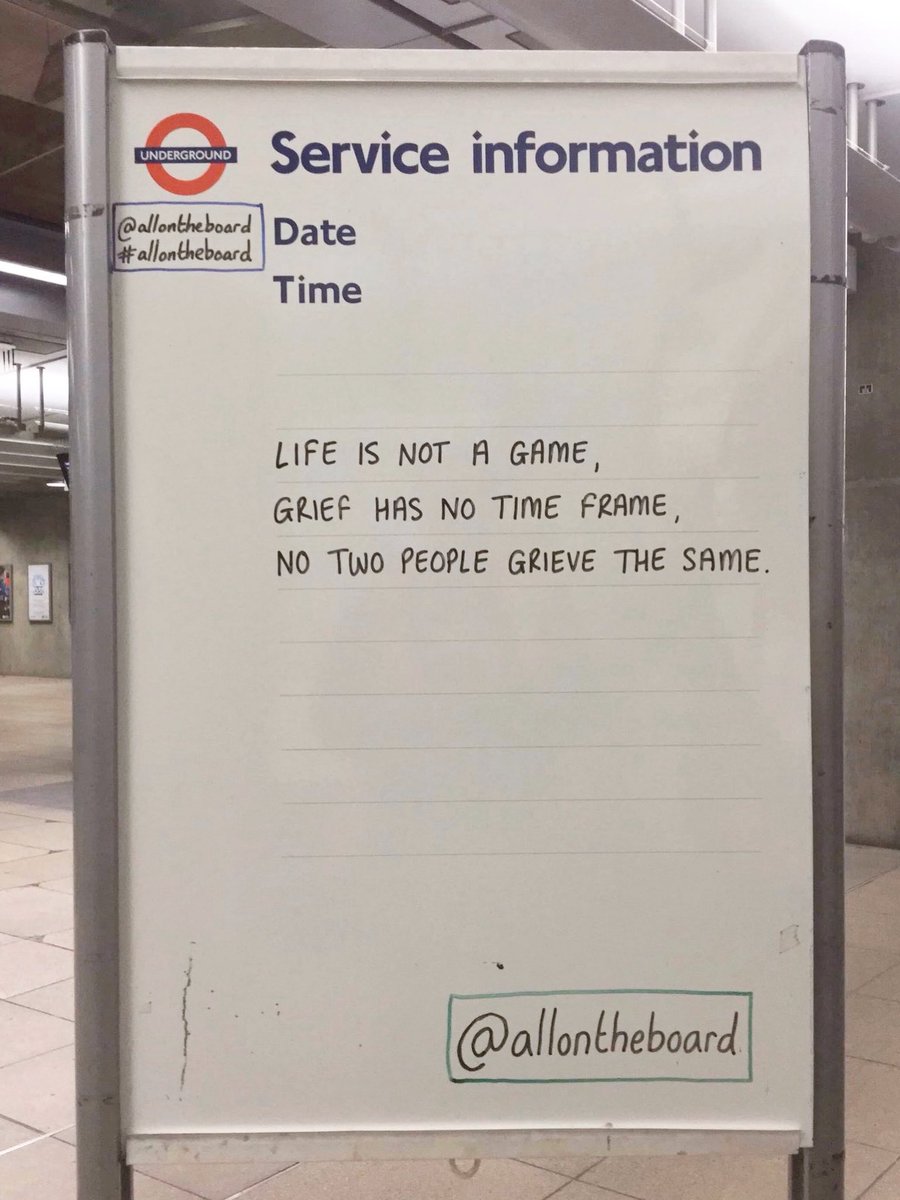 UNDERGROUND
Service information
@allontheboard
#allontheboard
Date
Time
LIFE IS NOT A GAME,
GRIEF HAS NO TIME FRAME,
NO TWO PEOPLE GRIEVE THE SAME.
@allontheboard